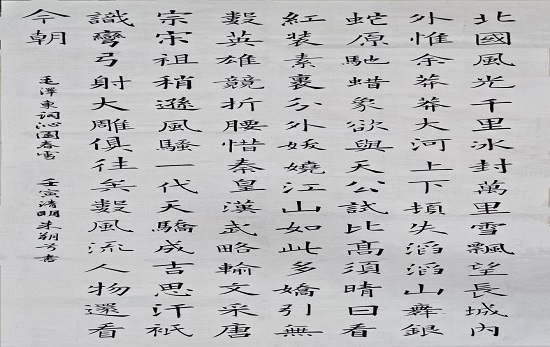 北國風光千里冰封萬里雪飄望長城內
外惟余莽莽大河上下頓失滔滔山舞銀
蛇原馳蜡象欲與天公試比高須晴日看
紅裝素裹分外妖嬈江山如此多嬌引無
數英雄競折腰惜秦皇漢武略輸文采唐
宗宋祖稍遜風騷一代天驕成吉思汗衹
識彎弓射大雕俱往矣數風流人物還看
今朝
毛澤東詞沁園春雪 壬寅清明朱朝書